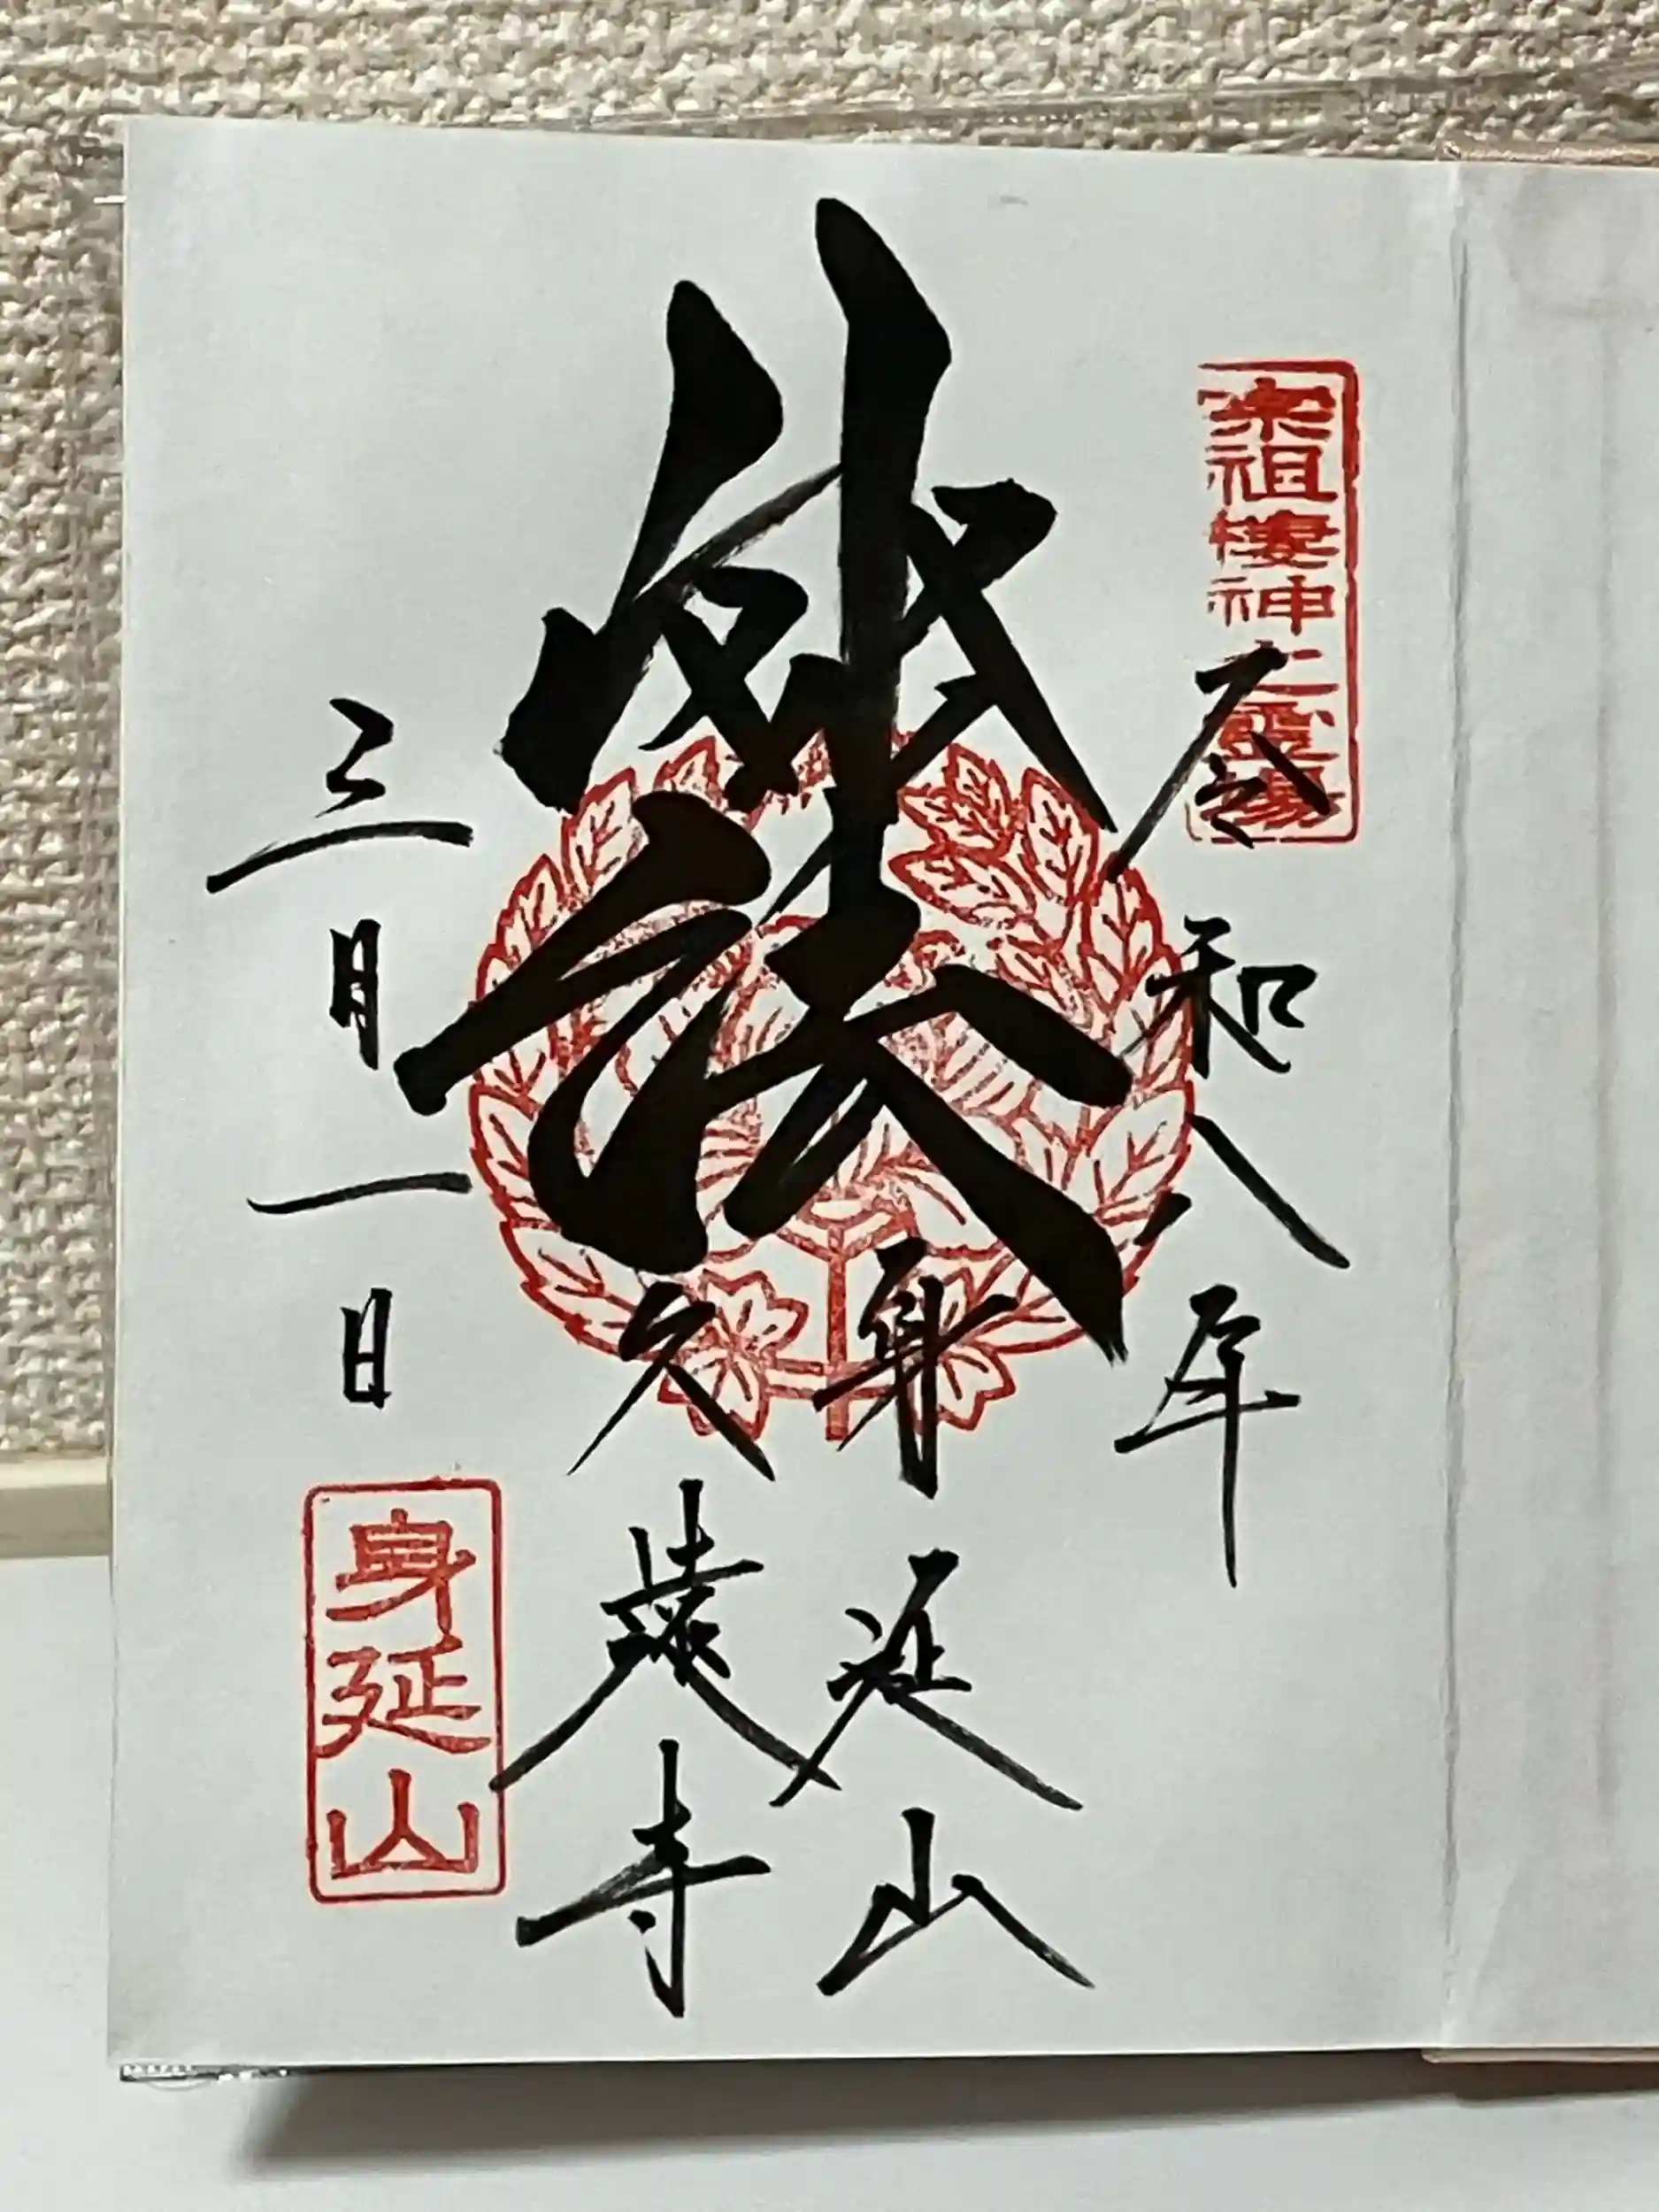 宗祖棲神之霊場
令和八年
身延山
久遠寺
三月一日
身延山